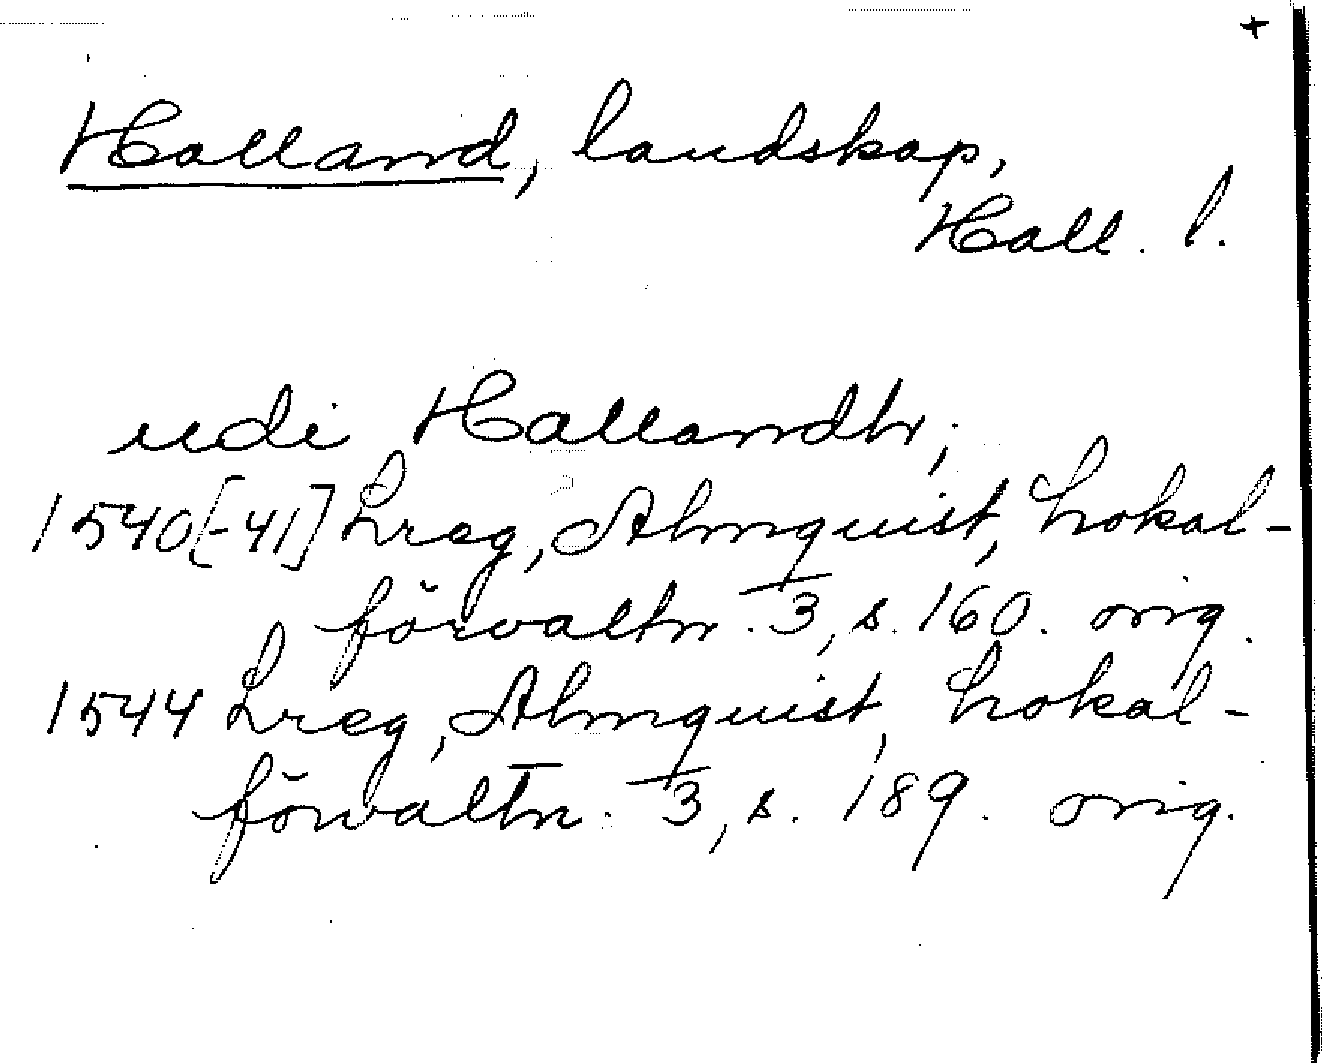 +
Halland, landskap,
Hall. l.
udi Hallandh;
1540[-41] Lreg, Almquist, Lokal-
förvaltn. 3, s. 160. orig.
1544 Lreg, Almquist, Lokal-
förvaltn. 3, s. 189. orig.